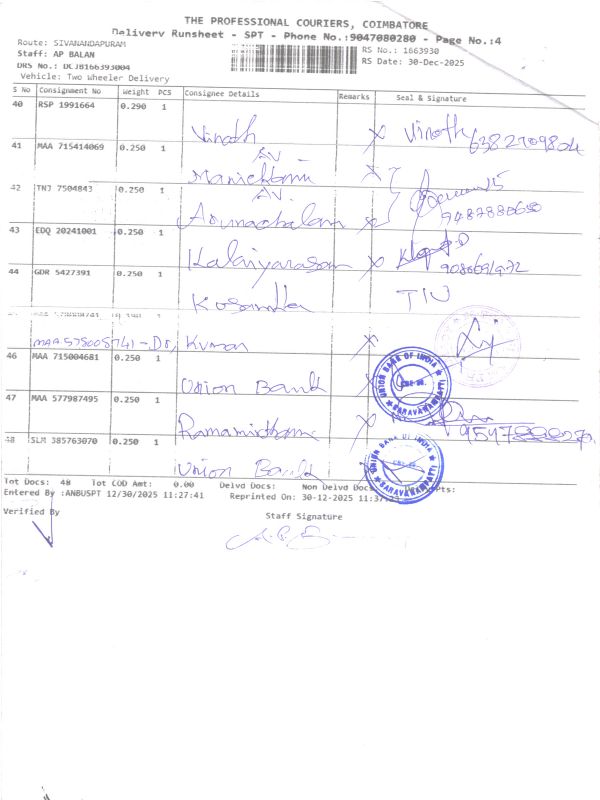 THE PROFESSIONAL COURIERS, COIMBATORE
Delivery Runsheet - SPT - Phone No.:9047080280 - Page No.:4
Route: SIVANANDAPURAM
Staff: AP BALAN
DRS No.: DCJB166393004
Vehicle: Two Wheeler Delivery
RS No.: 1663930
RS Date: 30-Dec-2025
S No Consignment No Weight PCS Consignee Details Remarks Seal & Signature
40 RSP 1991664 0.290 1 Vinoth X Vinoth 6382709804
41 MAA 715414069 0.250 1 AV Manickami X
42 TNJ 7504843 0.250 1 AV. Arunachalam X
43 EDQ 20241001 0.250 1 Kalaiyarasan X
44 GDR 5427391 0.250 1 TIV
MAA 578005741 - Dr, Kumar X
46 MAA 715004681 0.250 1 Union Bank X UNION BANK OF INDIA SARAVANAMPATTI
47 MAA 577987495 0.250 1 X
48 SLM 385763070 0.250 1 Union Bank X UNION BANK OF INDIA SARAVANAMPATTI
Tot Docs: 48 Tot COD Amt: 0.00 Delvd Docs: Non Delvd Docs:
Entered By :ANBUSPT 12/30/2025 11:27:41 Reprinted On: 30-12-2025
Verified By
Staff Signature